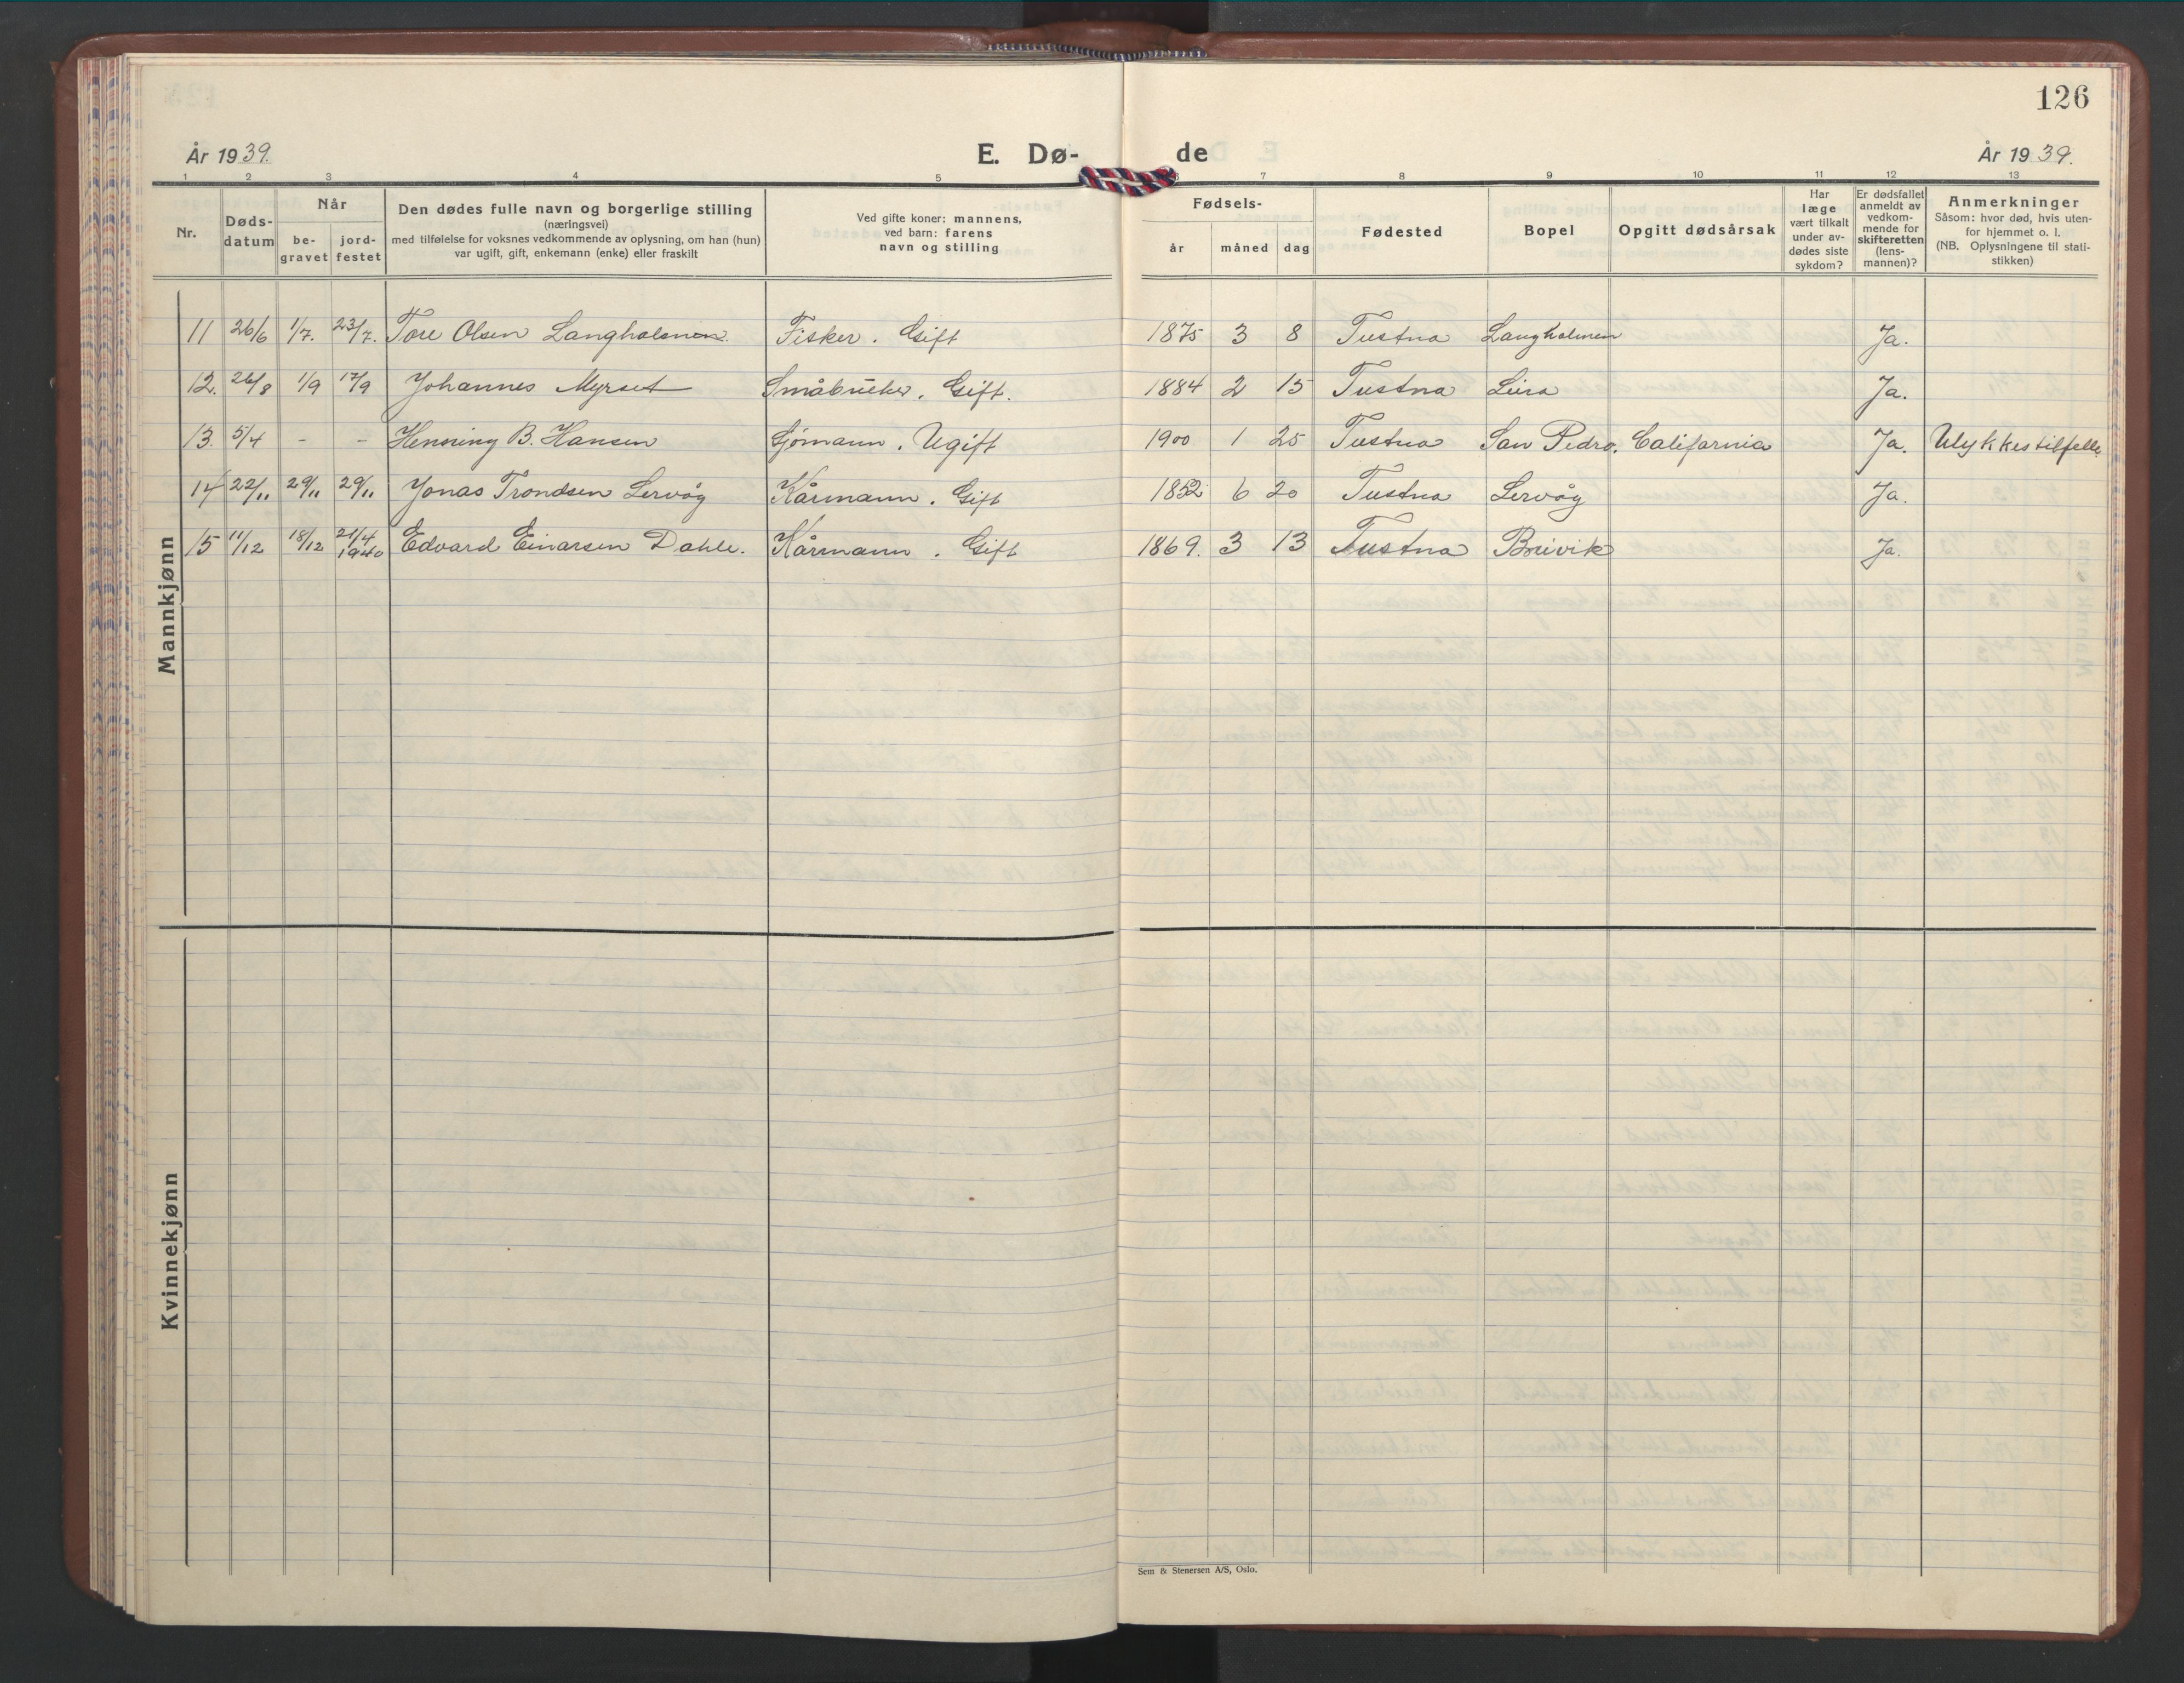 126
År 1939.
E. Dø- de
År 1939.
1 2 3 4 5 6 7 8 9 10 11 12 13
Nr.
Døds-
datum
Når
be-
gravet
jord-
festet
Den dødes fulle navn og borgerlige stilling
(næringsvei)
med tilføielse for voksnes vedkommende av oplysning, om han (hun)
var ugift, gift, enkemann (enke) eller fraskilt
Ved gifte koner: mannens,
ved barn: farens
navn og stilling
Fødsels-
år måned dag
Fødested
Bopel
Opgitt dødsårsak
Har
læge
vært tilkalt
under av-
dødes siste
sykdom?
Er dødsfallet
anmeldt av
vedkom-
mende for
skifteretten
(lens-
mannen)?
Anmerkninger
Såsom: hvor død, hvis uten-
for hjemmet o. l.
(NB. Oplysningene til stati-
stikken)
Mannkjønn
11 26/6 1/7. 23/7. Tore Olsen Langholmen. Fisker. Gift 1875 3 8 Tustna Langholmen Ja.
12. 26/8 1/9 17/9 Johannes Myrset Småbruker. Gift. 1884 2 15 Tustna Leira Ja.
13. 5/4 - - Henning B. Hansen Sjømann. Ugift 1900 1 25 Tustna San Pedro, California Ja. Ulykkestilfelle
14 22/11 29/11 29/11 Jonas Trondsen Lervåg Kårmann. Gift 1852 6 20 Tustna Lervåg Ja.
15 11/12 18/12 21/4 1940 Edvard Einarsen Dahle. Kårmann. Gift 1869. 3 13 Tustna Breivik Ja.
Kvinnekjønn
Sem & Stenersen A/S, Oslo.